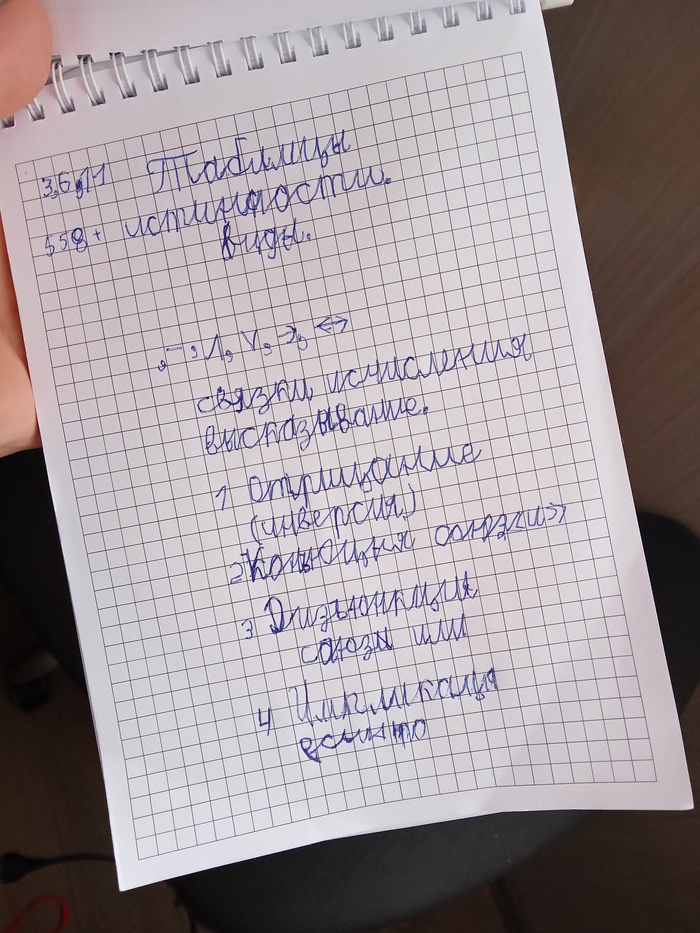 3,6,11 Таблицы
558+ истинности.
виды.
, ¬, Λ, V, →, ↔
связки исчисления
высказывание.
1 Отрицание
(инверсия)
2 Коньюция союз <<и>>
3 Дизъюнкция
союзы или
4 Импликация
если то